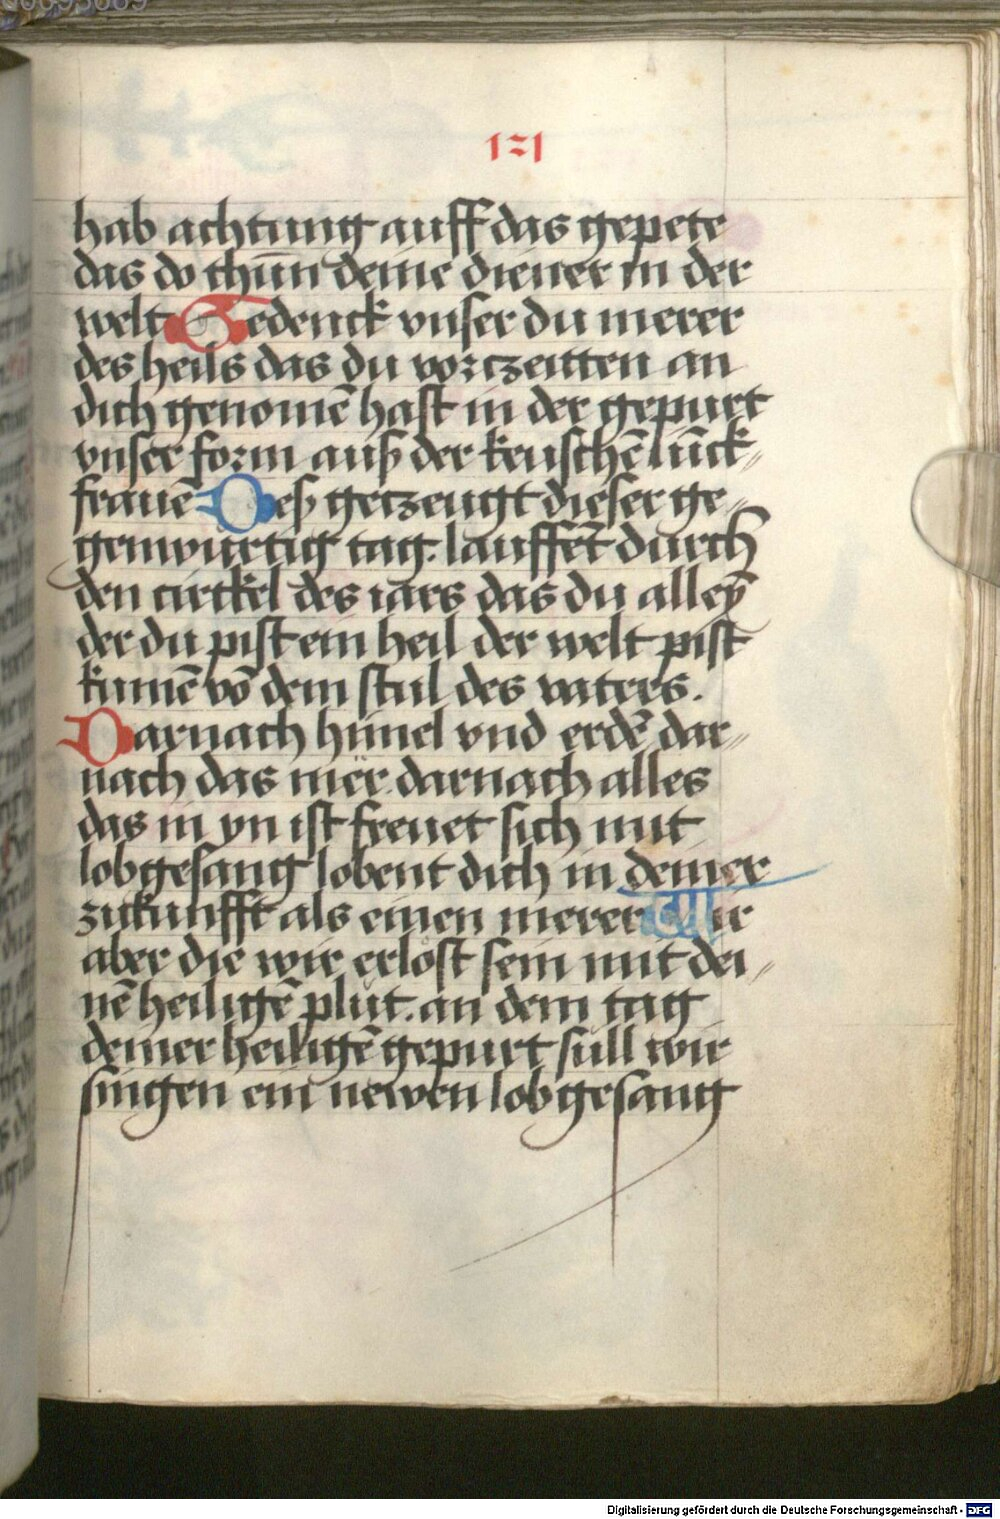 121
hab achtung auff das gepete
das do thun̄ deine diener in der
welt Gedenck vnser du merer
des heils das du vorczeitten an
dich genomē hast in der gepurt
vnser form auß der keuschē iūck⸗
frauē Deß getzeugt dieser ge⸗
genwurtig tag. lauffēt durch
den circkel des iars das du alleȳ
der du pist ein heil der welt pist
kumē vō dem stul des vaters.
Darnach himel vnd erdē dar⸗
nach das mer darnach alles
das in yn ist freuet sich mit
lobgesang lobent dich in deiner
zukunfft als einen merer Wir
aber die wir erlost sein mit dei⸗
nē heiligē plut. an dem tag
deiner heiligē gepurt sull wir
singen ein newen lobgesang
Digitalisierung gefördert durch die Deutsche Forschungsgemeinschaft - DFG